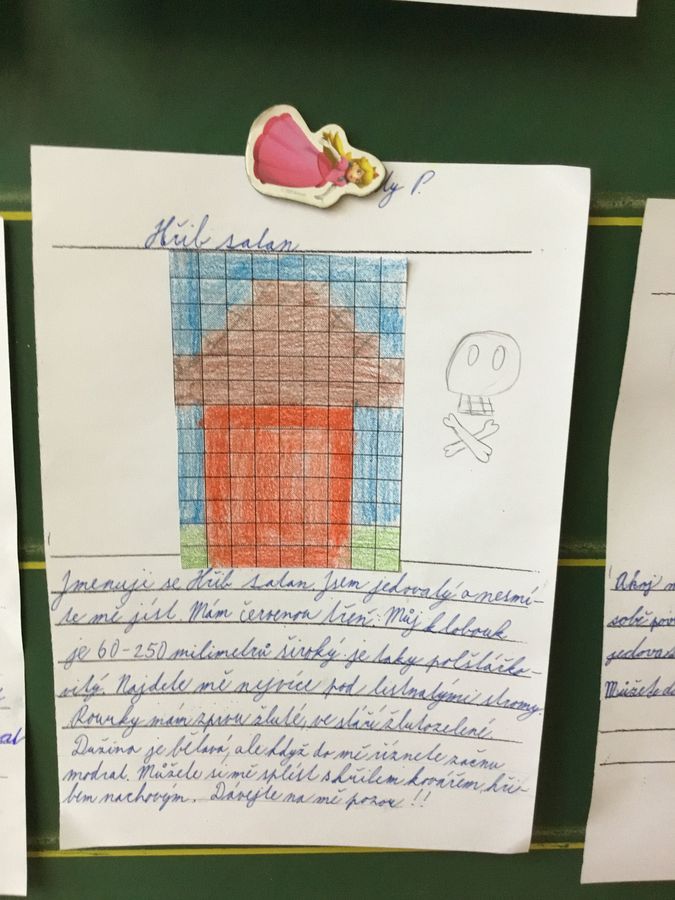 ly P.
Hřib satan
Jmenuji se Hřib satan, jsem jedovatý a nesmí-
te mě jíst. Mám červenou třeň. Můj klobouk
je 60-250 milimetrů široký je taky polštářko-
vitý. Najdete mě nejvíce pod listnatými stromy.
Rourky mám zprvu žluté, ve stáří žlutozelené.
Dužina je bělavá, ale když do mě říznete začnu
modrat. Můžete si mě splést s hřibem kovářem, hři-
bem nachovým. Dávejte na mě pozor!!
Ahoj
sobě
Můžete